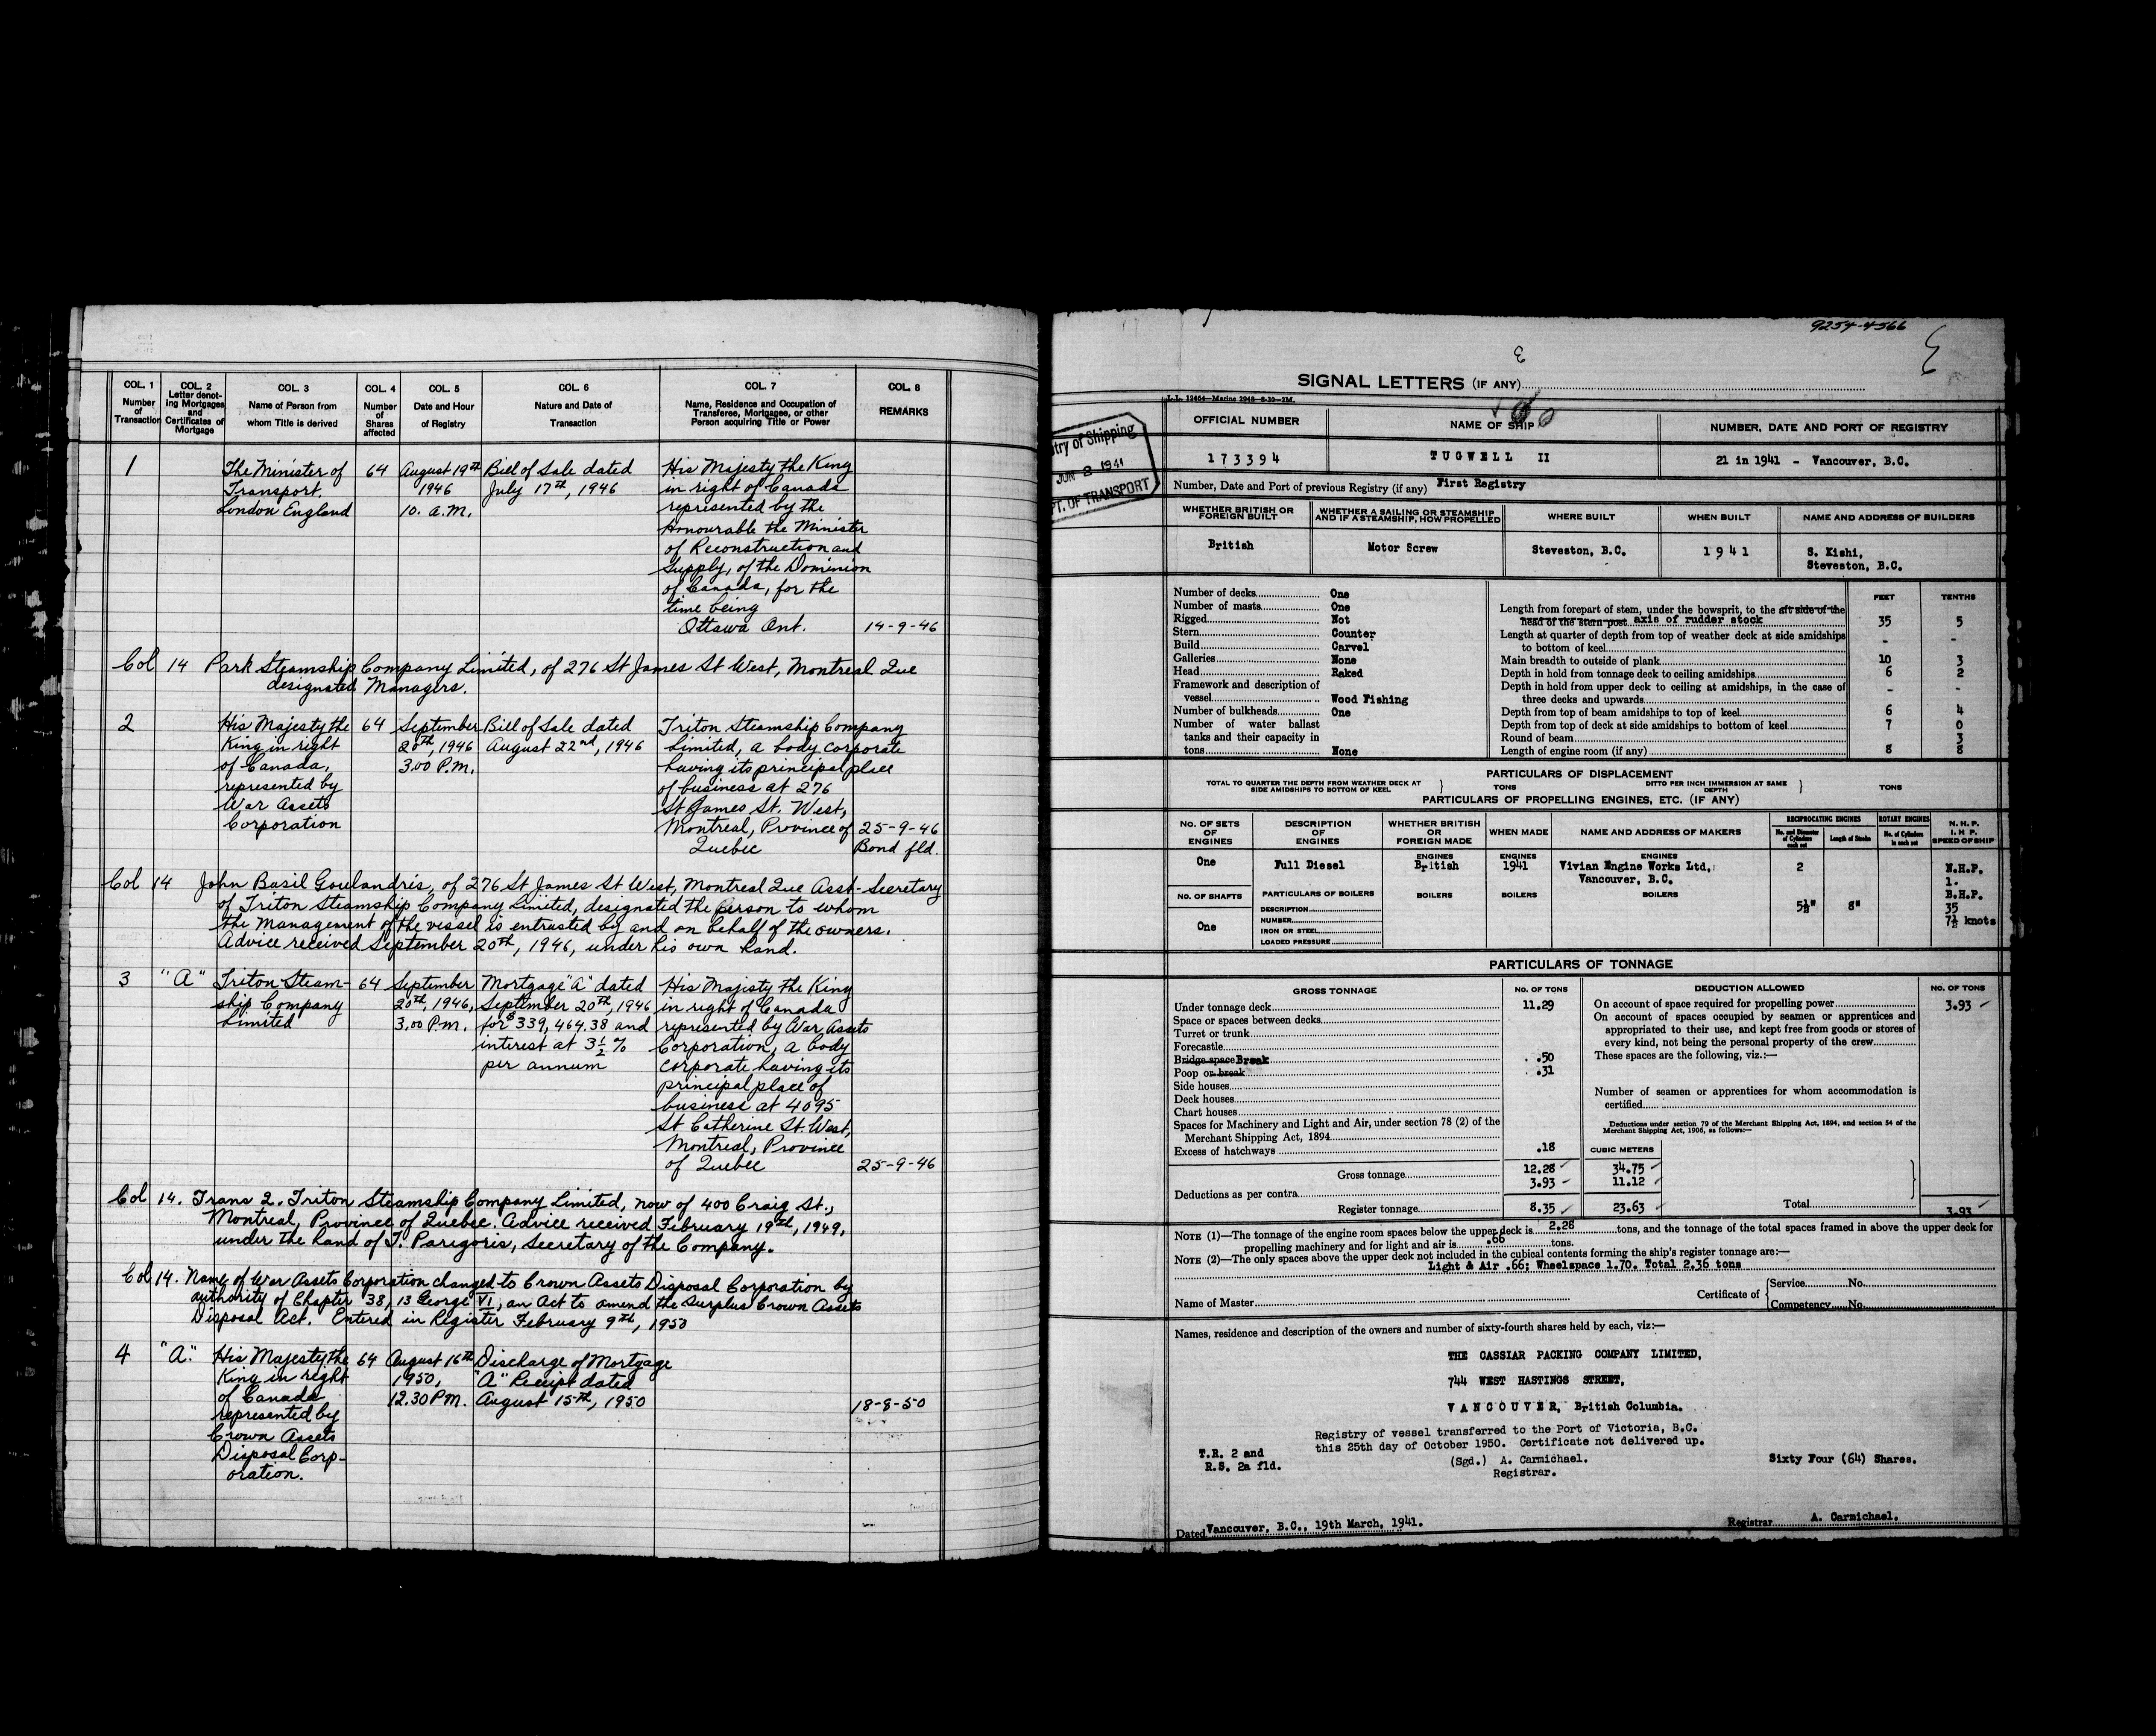 COL. 1 Number of Transaction
COL. 2 Letter denoting Mortgages and Certificates of Mortgage
COL. 3 Name of Person from whom Title is derived
COL. 4 Number of Shares affected
COL. 5 Date and Hour of Registry
COL. 6 Nature and Date of Transaction
COL. 7 Name, Residence and Occupation of Transferee, Mortgagee, or other Person acquiring Title or Power
COL. 8 REMARKS
1 The Minister of 64 August 19th Bill of Sale dated His Majesty the King
Transport. 1946 July 17th, 1946 in right of Canada
London England 10. A.M. represented by the
Honourable the Minister
of Reconstruction and
Supply, of the Dominion
of Canada, for the
time being
Ottawa Ont. 14-9-46
Col 14 Park Steamship Company Limited, of 276 St James St West, Montreal Que
designated Managers.
2 His Majesty the 64 September Bill of Sale dated Triton Steamship Company
King in right 20th, 1946 August 22nd, 1946 Limited, a body corporate
of Canada, 3.00 P.M. having its principal place
represented by of business at 276
War Assets St James St. West,
Corporation Montreal, Province of 25-9-46
Quebec Bond fld.
Col 14 John Basil Goulandris, of 276 St James St West, Montreal Que Asst-Secretary
of Triton Steamship Company Limited, designated the person to whom
the Management of the vessel is entrusted by and on behalf of the owners.
Advice received September 20th, 1946, under his own hand.
3 "A" Triton Steam- 64 September Mortgage "A" dated His Majesty the King
ship Company 20th, 1946, September 20th, 1946 in right of Canada
Limited 3.00 P.M. for $339,464.38 and represented by War Assets
interest at 3½% Corporation, a body
per annum corporate having its
principal place of
business at 4095
St Catherine St. West,
Montreal, Province
of Quebec 25-9-46
Col 14. Trans 2. Triton Steamship Company Limited, now of 400 Craig St.,
Montreal, Province of Quebec. Advice received February 19th, 1949,
under the hand of J. Paregoris, Secretary of the Company.
Col 14. Name of War Assets Corporation changed to Crown Assets Disposal Corporation by
authority of Chapter 38, 13 George VI, an Act to amend the Surplus Crown Assets
Disposal Act. Entered in Register February 9th, 1950
4 "A". His Majesty the 64 August 16th Discharge of Mortgage
King in right 1950, "A" Receipt dated
of Canada 12.30 P.M. August 15th, 1950 18-8-50
represented by
Crown Assets
Disposal Corp-
oration.
9254-4566
SIGNAL LETTERS (IF ANY)
L.L. 12464—Marine 2948—8-30—2M.
JUN 3 1941
OFFICIAL NUMBER NAME OF SHIP NUMBER, DATE AND PORT OF REGISTRY
173394 TUGWELL II 21 in 1941 - Vancouver, B.C.
Number, Date and Port of previous Registry (if any) First Registry
WHETHER BRITISH OR FOREIGN BUILT
WHETHER A SAILING OR STEAMSHIP AND IF A STEAMSHIP, HOW PROPELLED
WHERE BUILT WHEN BUILT NAME AND ADDRESS OF BUILDERS
British Motor Screw Steveston, B.C. 1941 S. Kishi,
Steveston, B.C.
Number of decks One
Number of masts One
Rigged Not
Stern Counter
Build Carvel
Galleries None
Head Raked
Framework and description of
vessel Wood Fishing
Number of bulkheads One
Number of water ballast
tanks and their capacity in
tons None
FEET TENTHS
Length from forepart of stem, under the bowsprit, to the aft side of the
head of the stern post axis of rudder stock 35 5
Length at quarter of depth from top of weather deck at side amidships
to bottom of keel - -
Main breadth to outside of plank 10 3
Depth in hold from tonnage deck to ceiling amidships 6 2
Depth in hold from upper deck to ceiling at amidships, in the case of
three decks and upwards - -
Depth from top of beam amidships to top of keel 6 4
Depth from top of deck at side amidships to bottom of keel 7 0
Round of beam 3
Length of engine room (if any) 8 8
PARTICULARS OF DISPLACEMENT
TOTAL TO QUARTER THE DEPTH FROM WEATHER DECK AT SIDE AMIDSHIPS TO BOTTOM OF KEEL } TONS DITTO PER INCH IMMERSION AT SAME DEPTH } TONS
PARTICULARS OF PROPELLING ENGINES, ETC. (IF ANY)
NO. OF SETS OF ENGINES
DESCRIPTION OF ENGINES
WHETHER BRITISH OR FOREIGN MADE
WHEN MADE
NAME AND ADDRESS OF MAKERS
RECIPROCATING ENGINES No. and Diameter of Cylinders each set Length of Stroke
ROTARY ENGINES No. of Cylinders in each set
N.H.P. I.H.P. SPEED OF SHIP
ENGINES ENGINES ENGINES
One Full Diesel British 1941 Vivian Engine Works Ltd, 2 N.H.P.
Vancouver, B.C. 1.
NO. OF SHAFTS PARTICULARS OF BOILERS BOILERS BOILERS BOILERS B.H.P.
One DESCRIPTION 5½" 8" 35
NUMBER 7½ knots
IRON OR STEEL
LOADED PRESSURE
PARTICULARS OF TONNAGE
GROSS TONNAGE NO. OF TONS DEDUCTION ALLOWED NO. OF TONS
Under tonnage deck 11.29
Space or spaces between decks
Turret or trunk
Forecastle
Bridge space Break .50
Poop or break .31
Side houses
Deck houses
Chart houses
Spaces for Machinery and Light and Air, under section 78 (2) of the
Merchant Shipping Act, 1894
Excess of hatchways .18
Gross tonnage 12.28
Deductions as per contra 3.93
Register tonnage 8.35
CUBIC METERS
34.75
11.12
23.63
On account of space required for propelling power 3.93
On account of spaces occupied by seamen or apprentices and
appropriated to their use, and kept free from goods or stores of
every kind, not being the personal property of the crew
These spaces are the following, viz.:—
Number of seamen or apprentices for whom accommodation is
certified
Deductions under section 79 of the Merchant Shipping Act, 1894, and section 54 of the
Merchant Shipping Act, 1906, as follows:—
Total 3.93
NOTE (1)—The tonnage of the engine room spaces below the upper deck is 2.28 tons, and the tonnage of the total spaces framed in above the upper deck for
propelling machinery and for light and air is .66 tons.
NOTE (2)—The only spaces above the upper deck not included in the cubical contents forming the ship's register tonnage are:—
Light & Air .66; Wheelspace 1.70. Total 2.36 tons
Name of Master Certificate of { Service No.
Competency No.
Names, residence and description of the owners and number of sixty-fourth shares held by each, viz:—
THE CASSIAR PACKING COMPANY LIMITED,
744 WEST HASTINGS STREET,
VANCOUVER, British Columbia.
Registry of vessel transferred to the Port of Victoria, B.C.
this 25th day of October 1950. Certificate not delivered up.
T.R. 2 and
R.S. 2a fld.
(Sgd.) A. Carmichael.
Registrar.
Sixty Four (64) Shares.
Dated Vancouver, B.C., 19th March, 1941. Registrar A. Carmichael.